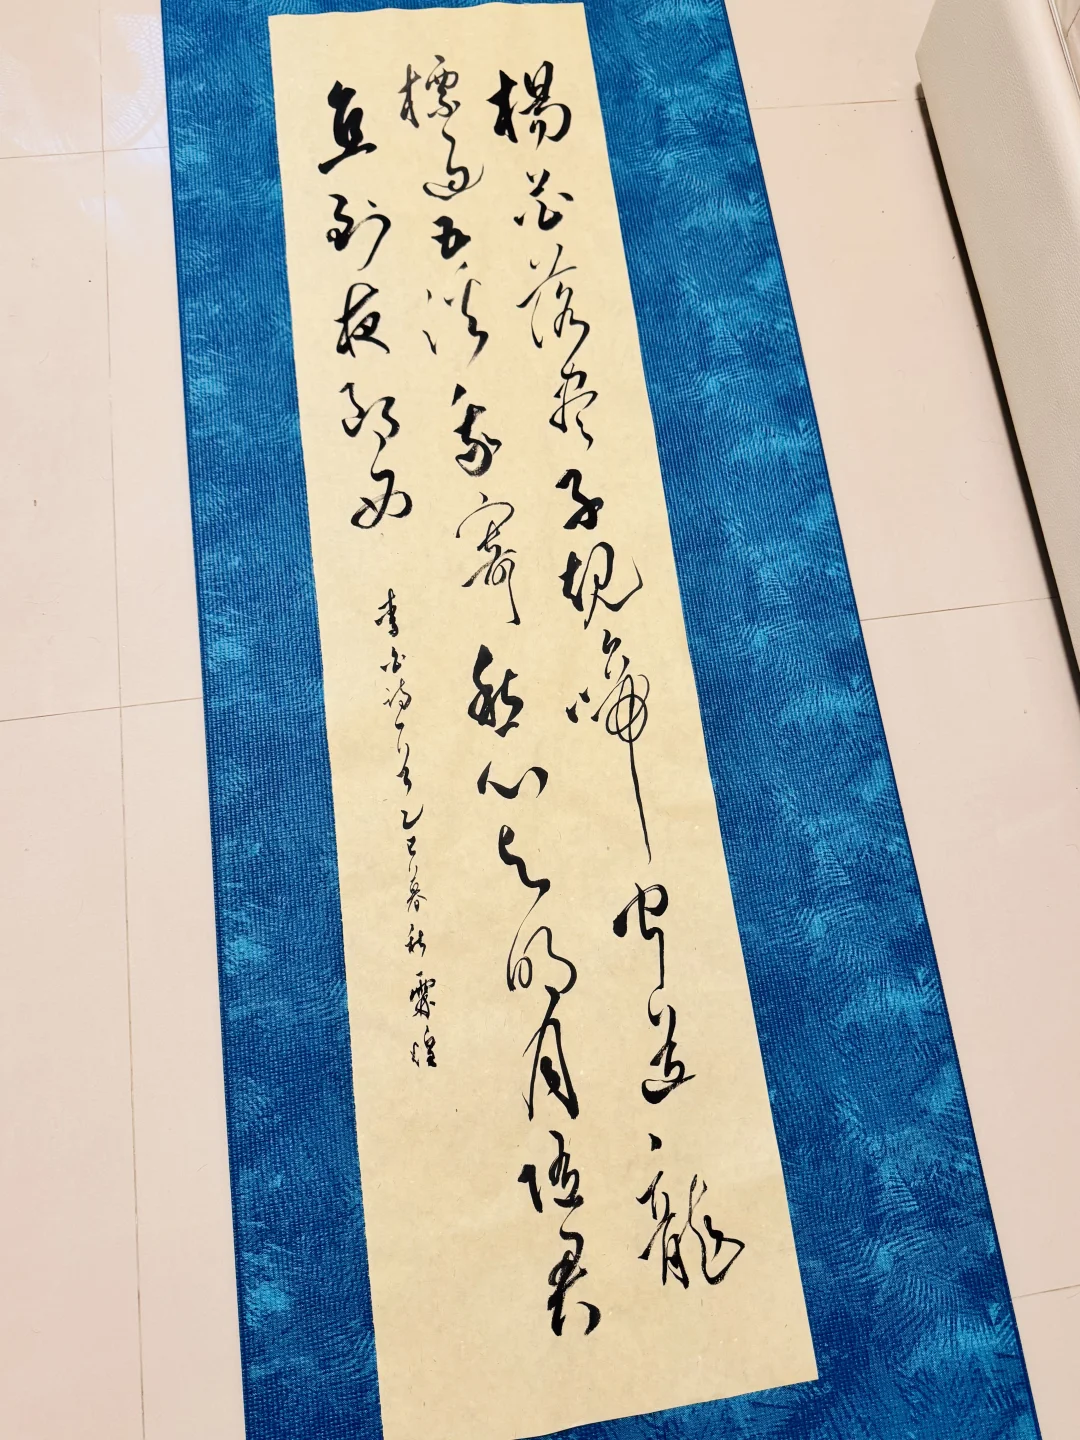 楊花落尽子規啼聞道龍
標過五溪我寄愁心与明月随君
直到夜郎西
李白詩一首乙巳暮秋霖煌